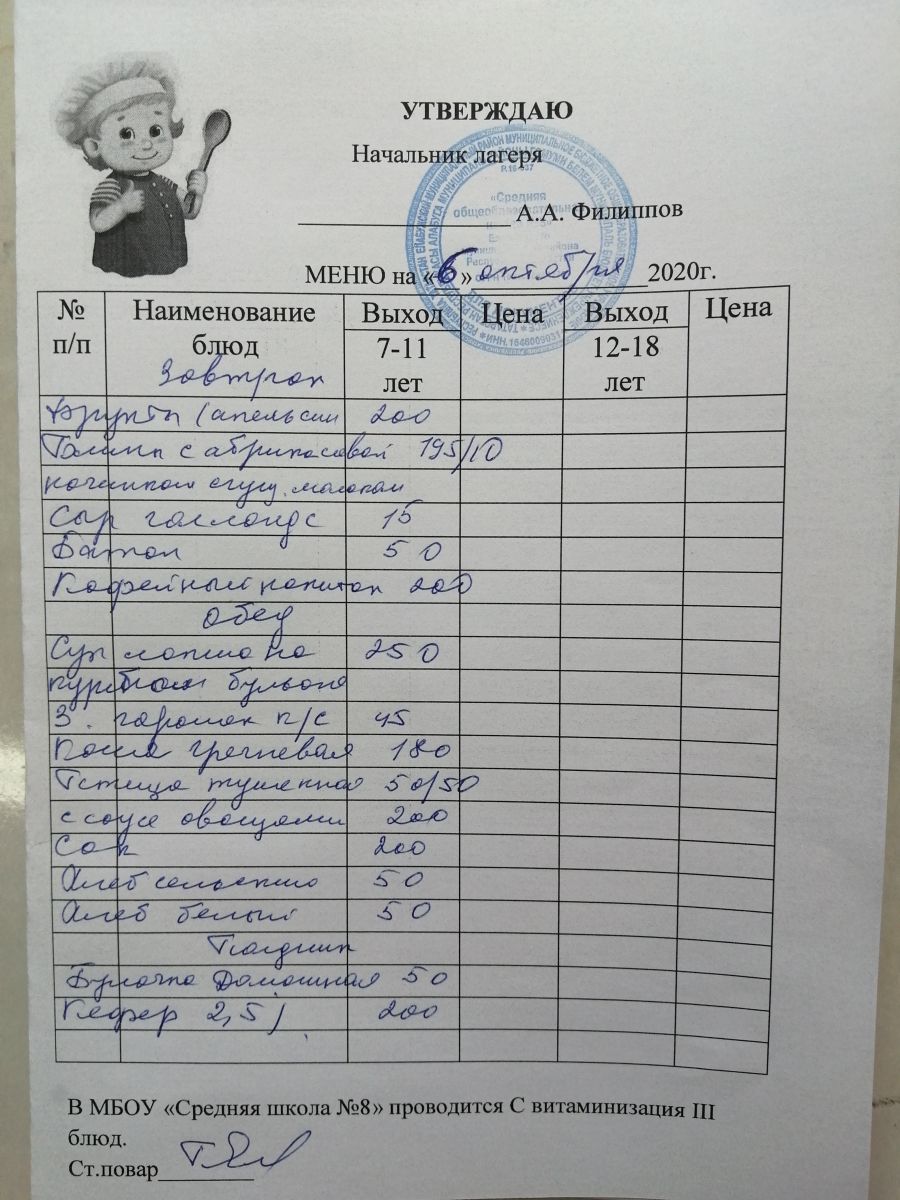 УТВЕРЖДАЮ
Начальник лагеря
А.А. Филиппов
МЕНЮ на «6» октября 2020г.
№ п/п Наименование блюд Выход 7-11 лет Цена Выход 12-18 лет Цена
Завтрак
Фрукты (апельсин 200
с абрикосовой 195/10
начинкой сгущ. молоком
Сыр голландс 15
Батон 50
Кофейный напиток 200
Обед
Суп лапша на 250
бульоне
З. горошек п/с 45
Каша гречневая 180
Птица тушенная 50/50
с соусе овощами 200
Сок 200
Хлеб сельский 50
Хлеб белый 50
Полдник
Булочка Домашная 50
Кефер 2,5 200
В МБОУ «Средняя школа №8» проводится С витаминизация III
блюд.
Ст.повар